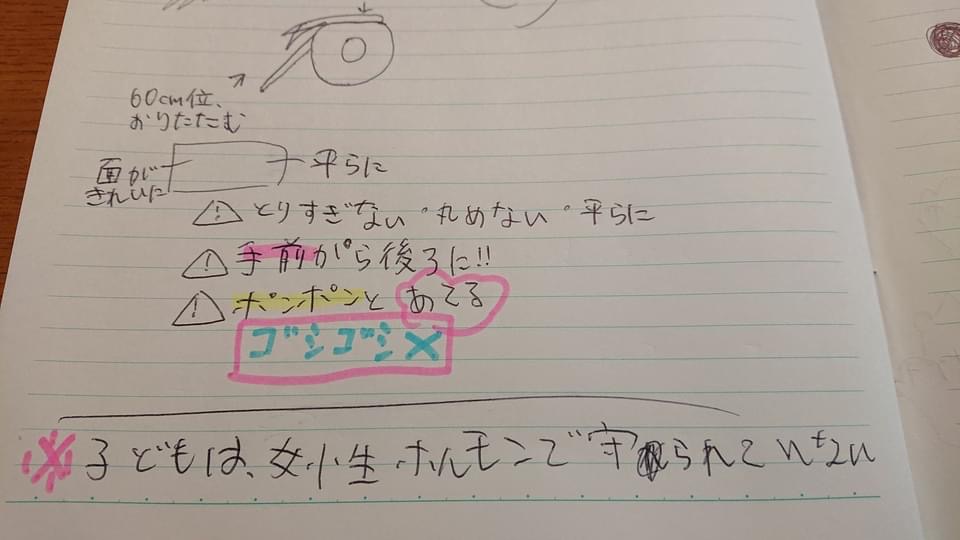 60cm位、
おりたたむ
面が
きれいに
平らに
⚠とりすぎない・丸めない・平らに
⚠手前から後ろに!!
⚠ポンポンとあてる
ゴシゴシ×
※子どもは、女性ホルモンで守られていない